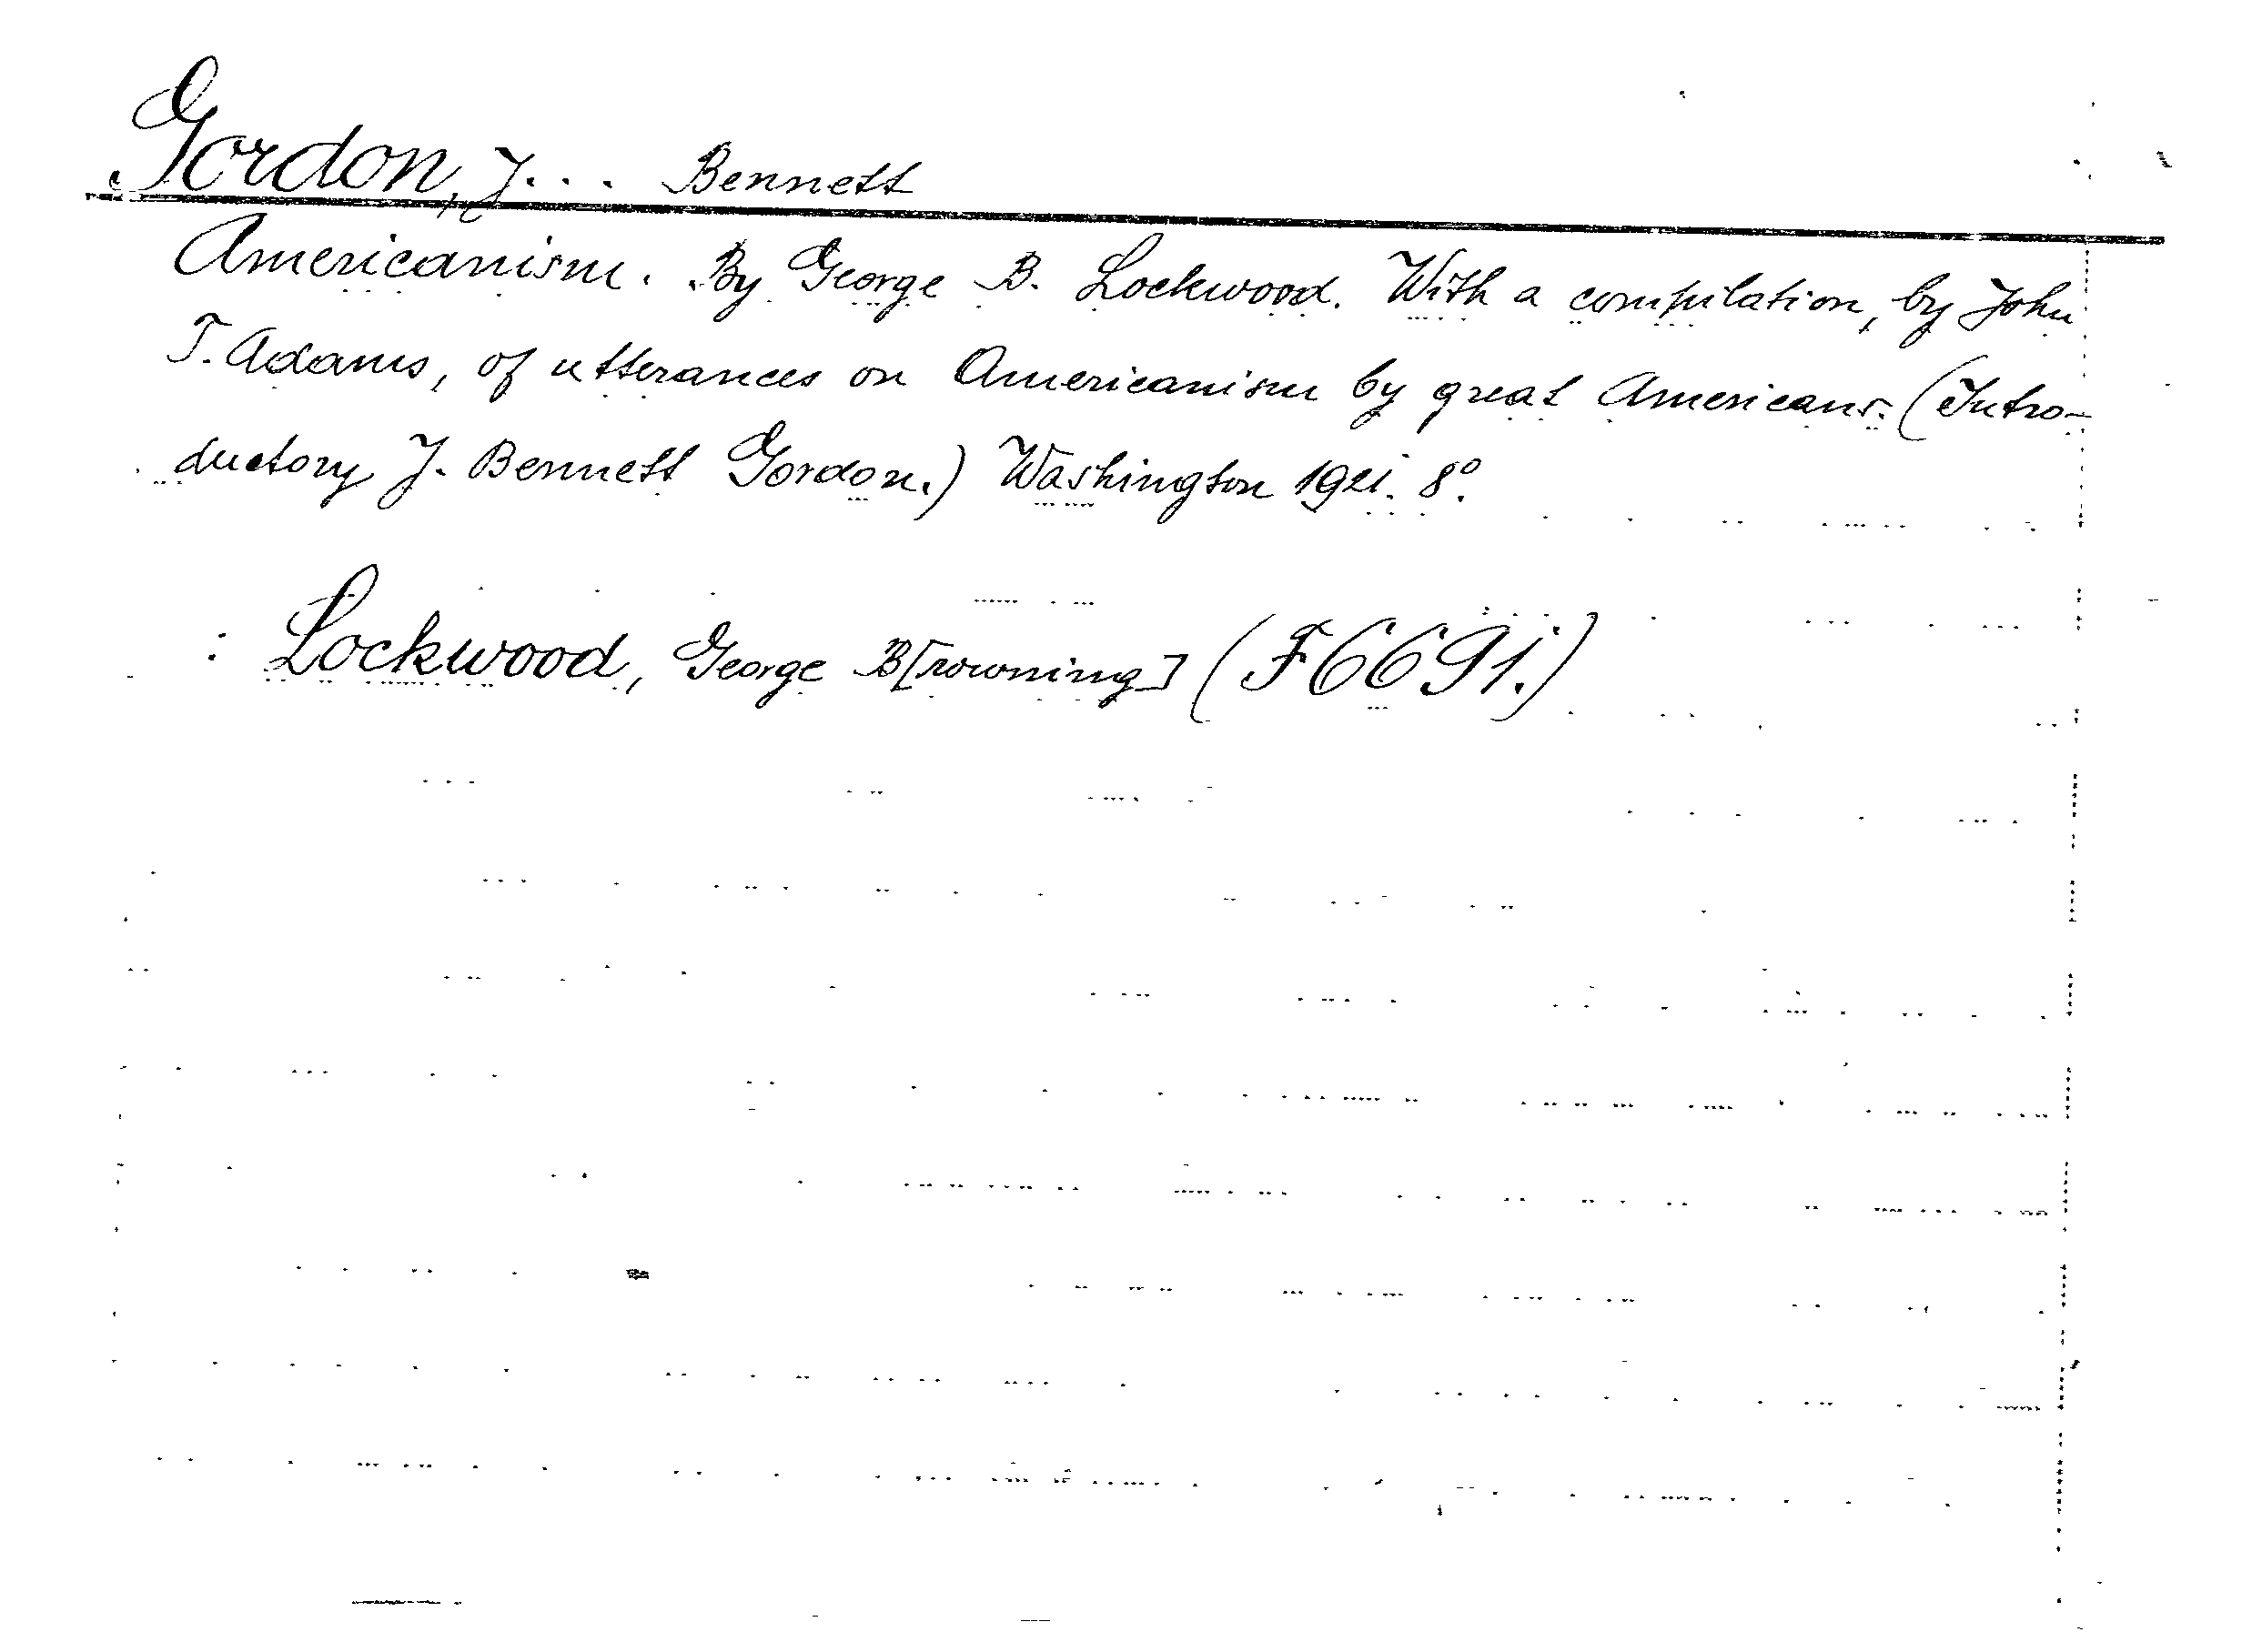 Gordon, J... Bennett
Americanism. By George B. Lockwood. With a compilation, by John
T. Adams, of utterances on Americanism by great Americans. (Intro-
ductory J. Bennett Gordon.) Washington 1921. 8°.
: Lockwood, George B[rowning] (F6691.)